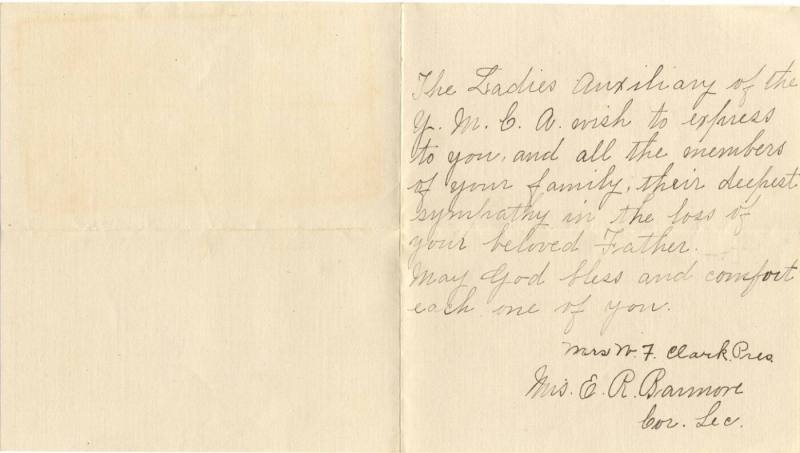 The Ladies Auxiliary of the
Y. M. C. A. wish to express
to you, and all the members
of your family, their deepest
sympathy in the loss of
your beloved Father.
May God bless and comfort
each one of you.
Mrs W. F. Clark. Pres.
Mrs. E. R. Barmore
Cor. Sec.